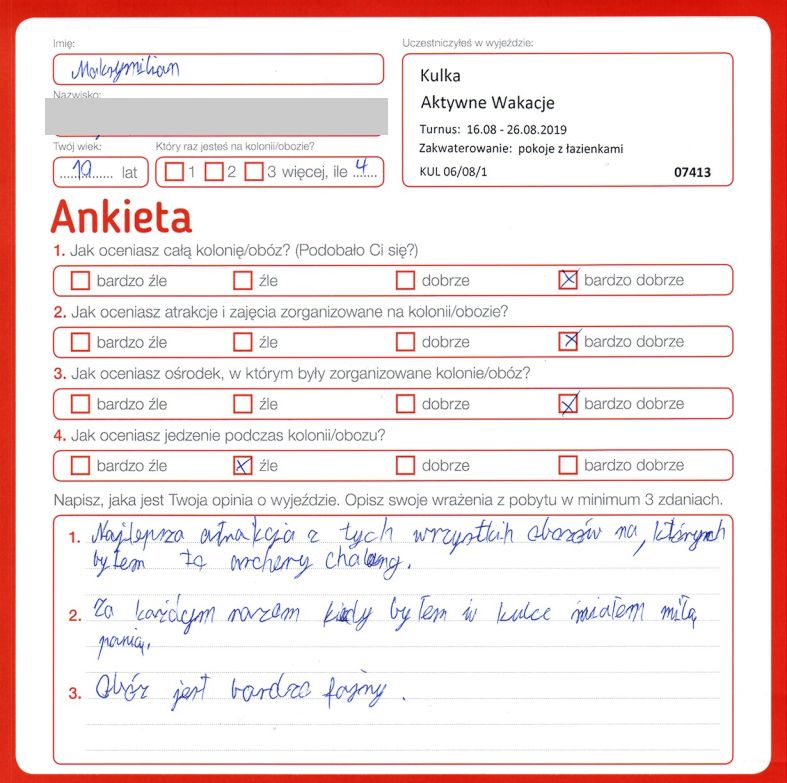 Imię:
Uczestniczyłeś w wyjeździe:
Maksymilian
Kulka
Aktywne Wakacje
Turnus: 16.08 - 26.08.2019
Zakwaterowanie: pokoje z łazienkami
KUL 06/08/1 07413
Nazwisko:
Twój wiek:
Który raz jesteś na kolonii/obozie?
10 lat
1 2 3 więcej, ile 4
Ankieta
1. Jak oceniasz całą kolonię/obóz? (Podobało Ci się?)
bardzo źle źle dobrze bardzo dobrze
2. Jak oceniasz atrakcje i zajęcia zorganizowane na kolonii/obozie?
bardzo źle źle dobrze bardzo dobrze
3. Jak oceniasz ośrodek, w którym były zorganizowane kolonie/obóz?
bardzo źle źle dobrze bardzo dobrze
4. Jak oceniasz jedzenie podczas kolonii/obozu?
bardzo źle źle dobrze bardzo dobrze
Napisz, jaka jest Twoja opinia o wyjeździe. Opisz swoje wrażenia z pobytu w minimum 3 zdaniach.
1. Najlepsza atrakcja z tych wrzystkih obozów na, których
byłem to archery chaleng.
2. Za każdym razem kiedy byłem w kulce miałem miłą
panią.
3. Obóz jest bardzo fajny.